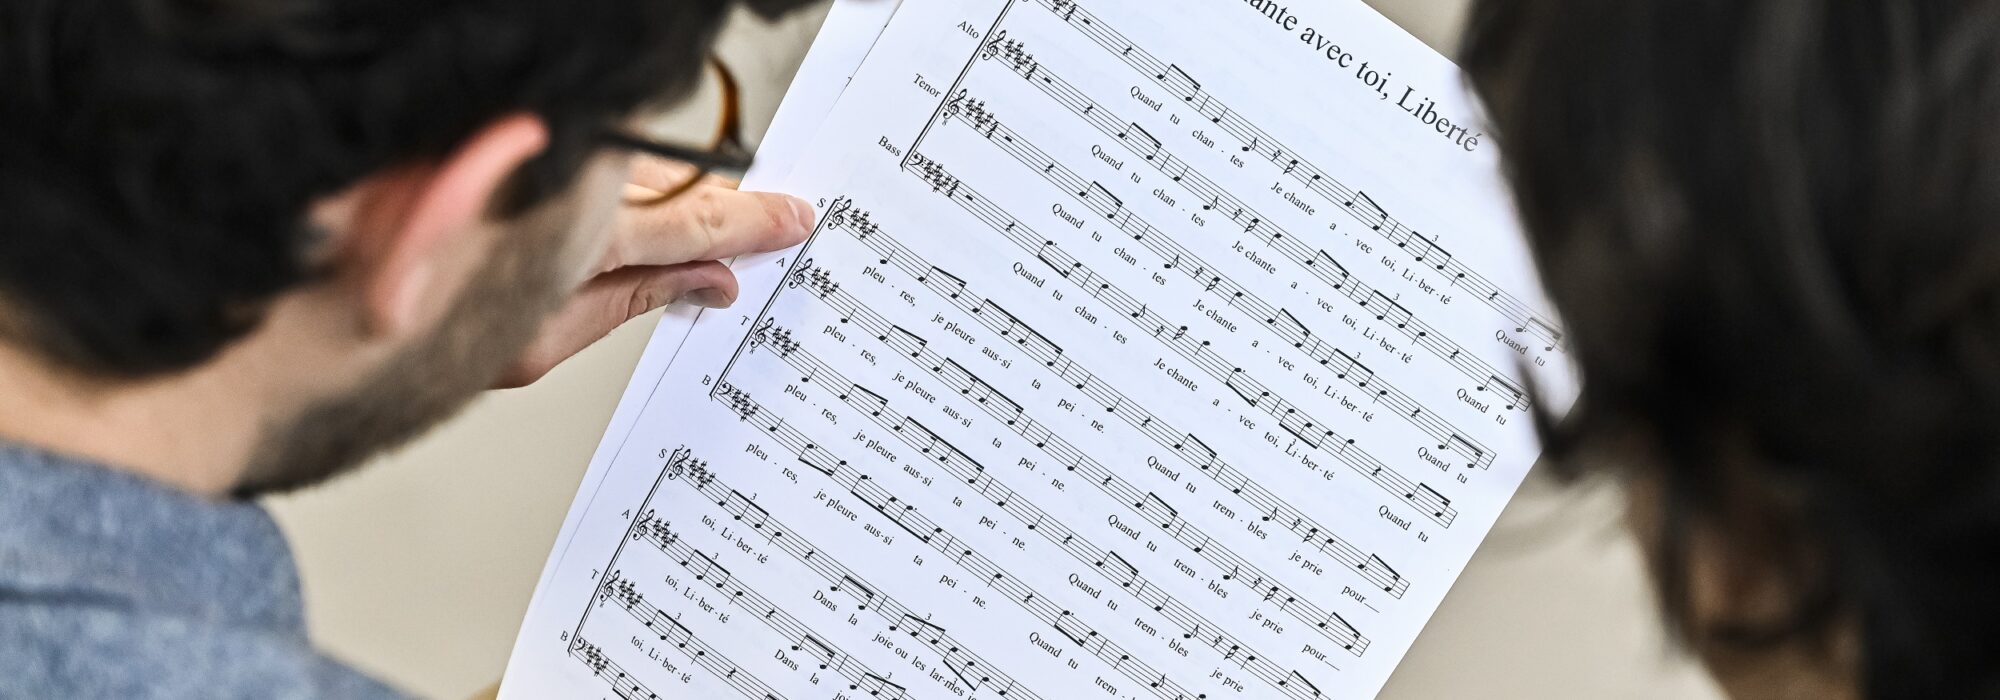 ante avec toi, Liberté
Quand tu chan - tes Je chante a - vec toi, Li - ber - té Quand tu
Alto
Quand tu chan - tes Je chante a - vec toi, Li - ber - té Quand tu
Tenor
Quand tu chan - tes Je chante a - vec toi, Li - ber - té Quand tu
Bass
Quand tu chan - tes Je chante a - vec toi, Li - ber - té Quand tu
S
pleu - res, je pleure aus-si ta pei - ne. Quand tu trem - bles je prie pour
A
pleu - res, je pleure aus-si ta pei - ne. Quand tu trem - bles je prie pour
T
pleu - res, je pleure aus-si ta pei - ne. Quand tu trem - bles je prie
B
pleu - res, je pleure aus-si ta pei - ne. Quand tu trem -
S
toi, Li-ber-té Dans la joie ou les lar-mes
A
toi, Li-ber-té Dans la
T
toi, Li-ber-té
B